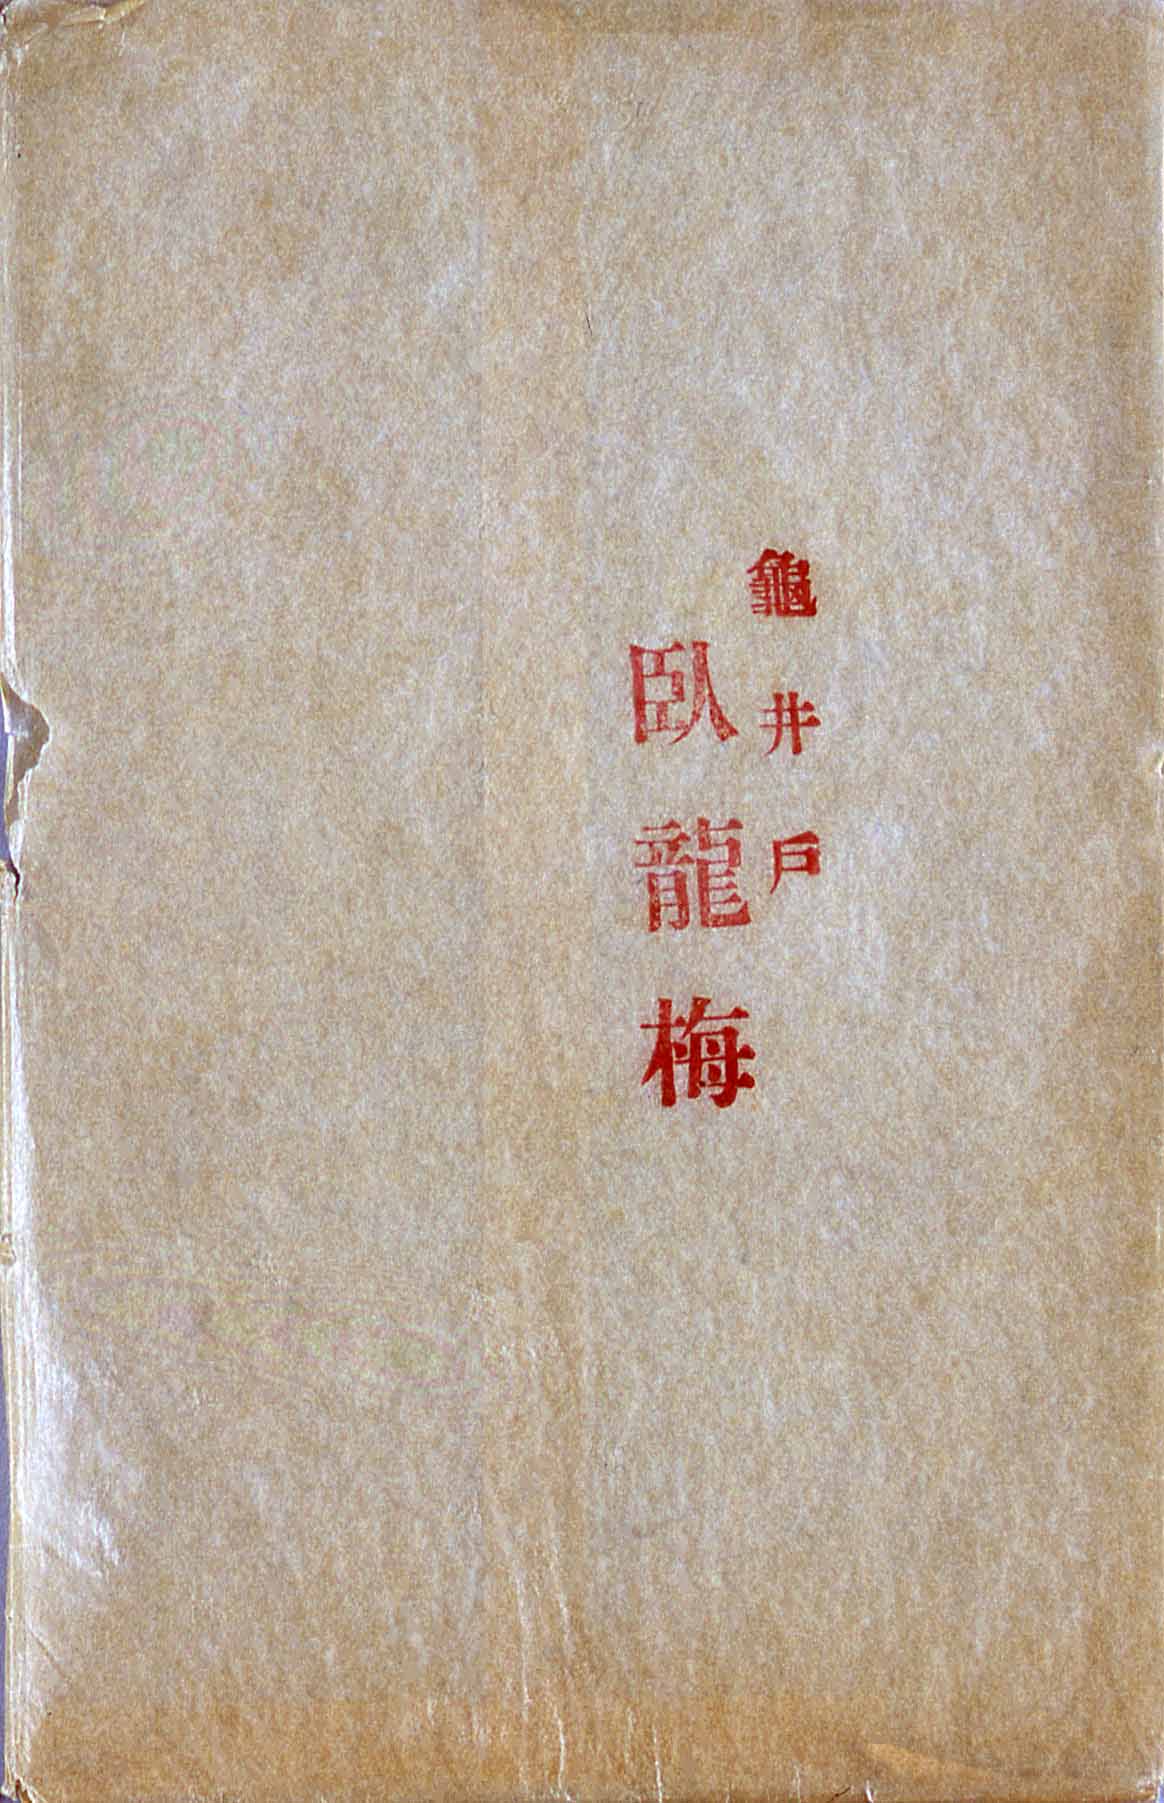 龜井戸
臥龍梅